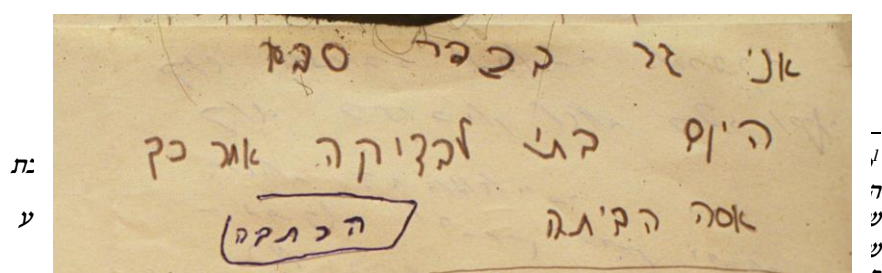 אני גר בכפר סבא
היום בתי לבדיקה אחר כך
אסה הביתה
הכתבה